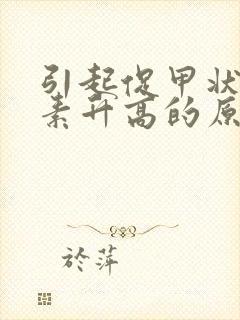 引起促甲状
素升高的原
於萍